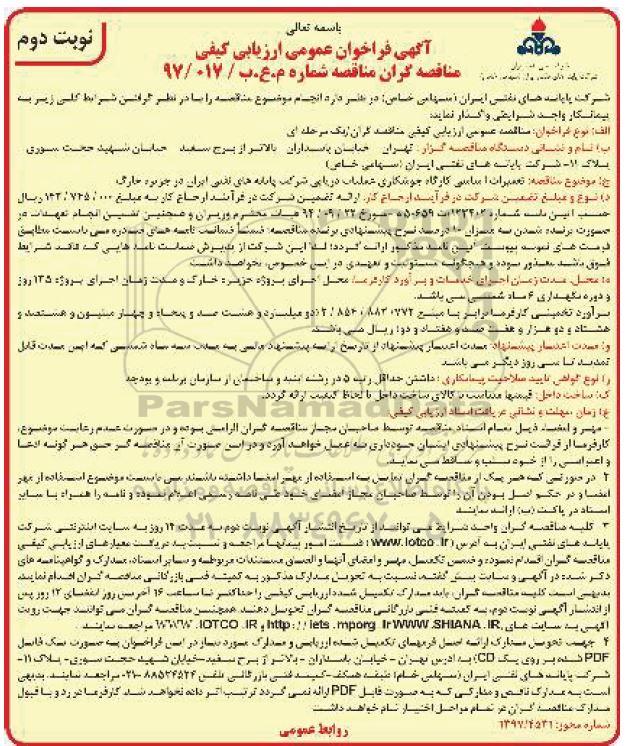 باسمه تعالی
نوبت دوم
آگهی فراخوان عمومی ارزیابی کیفی
مناقصه گران مناقصه شماره م.ع.ب / ۰۱۷ / ۹۷
شرکت پایانه های نفتی ایران (سهامی خاص) در نظر دارد انجام موضوع مناقصه را با در نظر گرفتن شرایط کلی زیر به
پیمانکار واجد شرایطی واگذار نماید:
الف: نوع فراخوان: مناقصه عمومی ارزیابی کیفی مناقصه گران/یک مرحله ای
ب) نام و نشانی دستگاه مناقصه گزار: تهران - خیابان پاسداران - بالاتر از برج سفید - خیابان شهید حجت سوری -
پلاک ۱۱- شرکت پایانه های نفتی ایران (سهامی خاص)
ج) موضوع مناقصه: تعمیرات اساسی کارگاه جوشکاری عملیات دریایی شرکت پایانه های نفتی ایران در جزیره خارگ
د) نوع و مبلغ تضمین شرکت در فرآیند ارجاع کار: ارائه تضمین شرکت در فرآیند ارجاع کار به مبلغ ۱۴۲/۷۴۵/۰۰۰ ریال
صورت برنده شدن به میزان ۱۰ درصد نرخ پیشنهادی برنده مناقصه؛ ضمناً ضمانت نامه های صادره می بایست مطابق
فوق باشد معذور بوده و هیچگونه مسئولیت و تعهدی در این خصوص، نخواهد داشت
ه) محل، مدت زمان اجرای خدمات و برآورد کارفرما: محل اجرای پروژه جزیره خارک و مدت زمان اجرای پروژه ۱۳۵ روز
و دوره نگهداری ۶ ماه شمسی می باشد.
برآورد تخمینی کارفرما برابر با مبلغ ۲/۸۵۴/۸۸۲/۰۷۷۲ (دو میلیارد و هشت صد و پنجاه و چهار میلیون و هشتصد و
هشتاد و دو هزار و هفت صد و هفتاد و دو) ریال می باشد.
و) مدت اعتبار پیشنهاد: مدت اعتبار پیشنهاد از تاریخ ارایه پیشنهاد مالی به مدت سه ماه شمسی که این مدت قابل
تمدید تا سی روز دیگر می باشد.
ز) نوع گواهی تایید صلاحیت پیمانکاری: داشتن حداقل رتبه ۵ در رشته ابنیه و ساختمان از سازمان برنامه و بودجه
ک) ساخت داخل: قیمتها متناسب با کالای ساخت داخل با لحاظ کیفیت ارائه گردد.
ع) زمان، مهلت و نشانی دریافت اسناد ارزیابی کیفی:
- مهر و امضاء ذیل تمام اسناد مناقصه توسط صاحبان مجاز مناقصه گران الزامی بوده و در صورت عدم رعایت موضوع،
کارفرما از قرائت نرخ پیشنهادی ایشان خودداری به عمل خواهد آورد و در این صورت آن مناقصه گر حق هر گونه ادعا
و اعتراضی را از خود سلب و ساقط می نماید.
اسناد در پاکت (ب) ارائه نمایند
۳- کلیه مناقصه گران واجد شرایط می توانند از تاریخ انتشار آگهی نوبت دوم به مدت ۱۴ روز به سایت اینترنتی شرکت
پایانه های نفتی ایران به آدرس (www.iotco.ir) قسمت امور پیمانها مراجعه و نسبت به دریافت معیارهای ارزیابی کیفی
مناقصه گران اقدام نموده و ضمن تکمیل، مهر و امضای آنها و الصاق مستندات مربوطه و سایر اسناد، مدارک و گواهینامه های
ذکر شده در آگهی و سایت پیش گفته، نسبت به تحویل مدارک مذکور به کمیته فنی بازرگانی مناقصه گران اقدام نمایند.
بدیهی است کلیه مناقصه گران، باید مدارک تکمیل شده ارزیابی کیفی را حداکثر تا ساعت ۱۶ آخرین روز انقضای ۱۴ روز پس
از انتشار آگهی نوبت دوم، به کمیته فنی بازرگانی مناقصه گران تحویل دهند. همچنین مناقصه گران می توانند جهت رویت
آگهی به سایت های WWW.SHIANA.IR, http://iets.mporg.ir و WWW.IOTCO.IR مراجعه نمایند.
۴- جهت تحویل مدارک ارائه اصل فرمهای تکمیل شده ارزیابی و مدارک مورد نیاز در این فراخوان به صورت یک فایل
PDF شده بر روی یک CD) به آدرس تهران - خیابان پاسداران - بالاتر از برج سفید-خیابان شهید حجت سوری- پلاک ۱۱-
شرکت پایانه های نفتی ایران (سهامی خاص) طبقه همکف-کمیته فنی بازرگانی تلفن ۸۸۵۲۴۵۲۴-۰۲۱ مراجعه نمایند. بدیهی
است به مدارک ناقص و مدارکی که به صورت فایل PDF ارائه نمی گردد ترتیب اثر داده نخواهد شد. کارفرما در رد و یا قبول
مدارک مناقصه گران در تمام مراحل اختیار تام خواهد داشت
شماره مجوز: ۱۳۹۷/۴۵۳۱
روابط عمومی
ParsNamad
۰۲۱-۸۸۳۴۹۶۷۰-۵